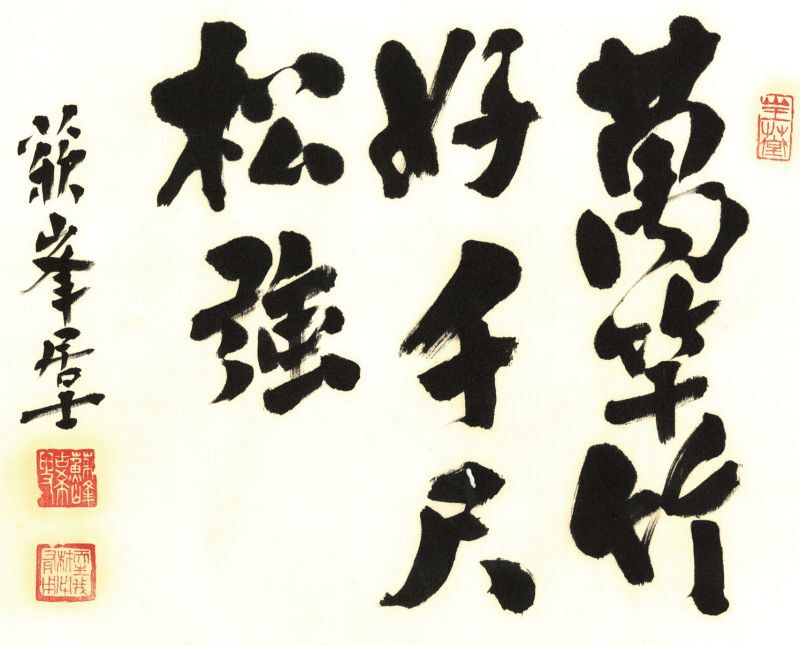 萬竿竹
好千尺
松強
蘇峯居士